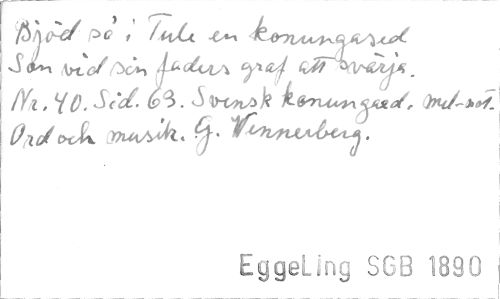 Bjöd så i Tule en konungased
Son vid sin faders graf att svärja.
Nr. 40. Sid. 63. Svensk konungaed. mel-not.
Ord och musik. G. Wennerberg.
EggeLing SGB 1890